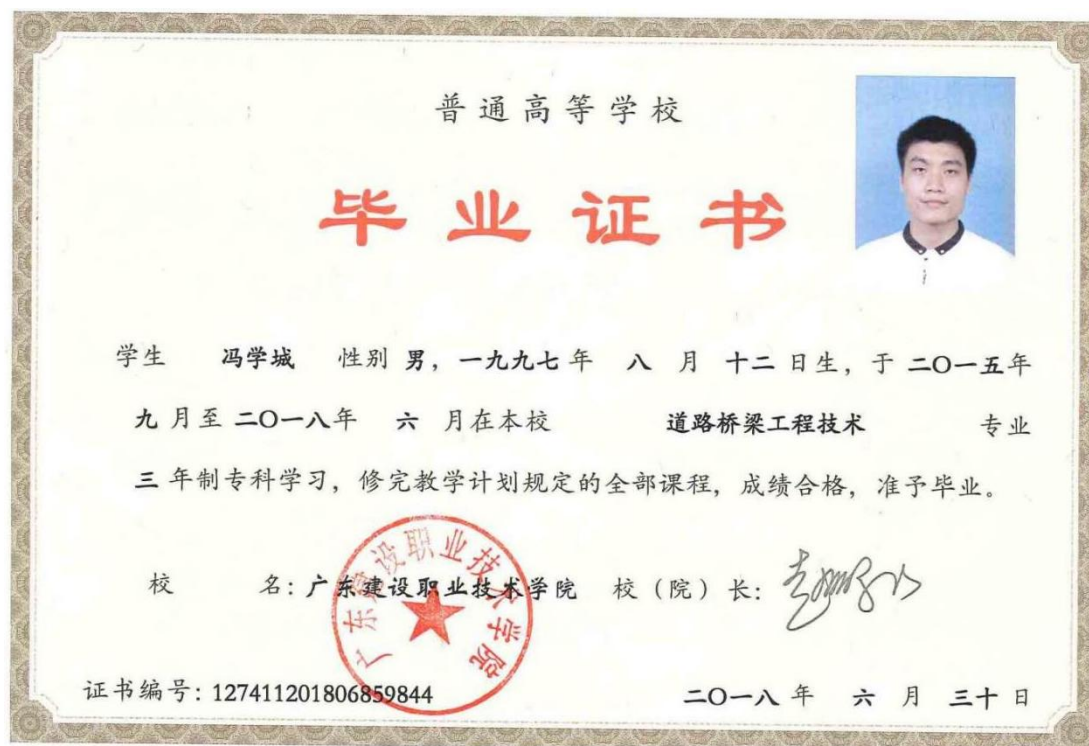 普通高等学校
毕业证书
学生 冯学城 性别 男，一九九七年 八 月 十二 日生，于 二〇一五年
九 月至 二〇一八年 六 月在本校 道路桥梁工程技术 专业
三 年制专科学习，修完教学计划规定的全部课程，成绩合格，准予毕业。
校 名：广东建设职业技术学院 校（院）长：
广东建设职业技术学院
证书编号：127411201806859844 二〇一八 年 六 月 三十 日